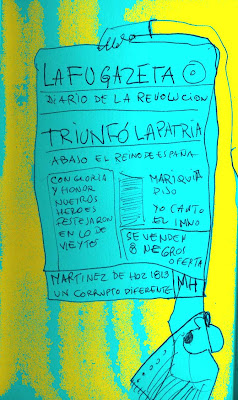 LA FUGAZETA
DIARIO DE LA REVOLUCION
TRIUNFÓ LA PATRIA
ABAJO EL REINO DE ESPAÑA
CON GLORIA
Y HONOR
NUETROS
HEROES
FESTEJARON
EN LO DE
VIEYTES
MARIQUITA
DIJO
YO CANTO
EL IMNO
SE VENDEN
8 NEGROS
OFERTA
MARTINEZ DE HOZ 1813
UN CORRUPTO DIFERENTE
MH